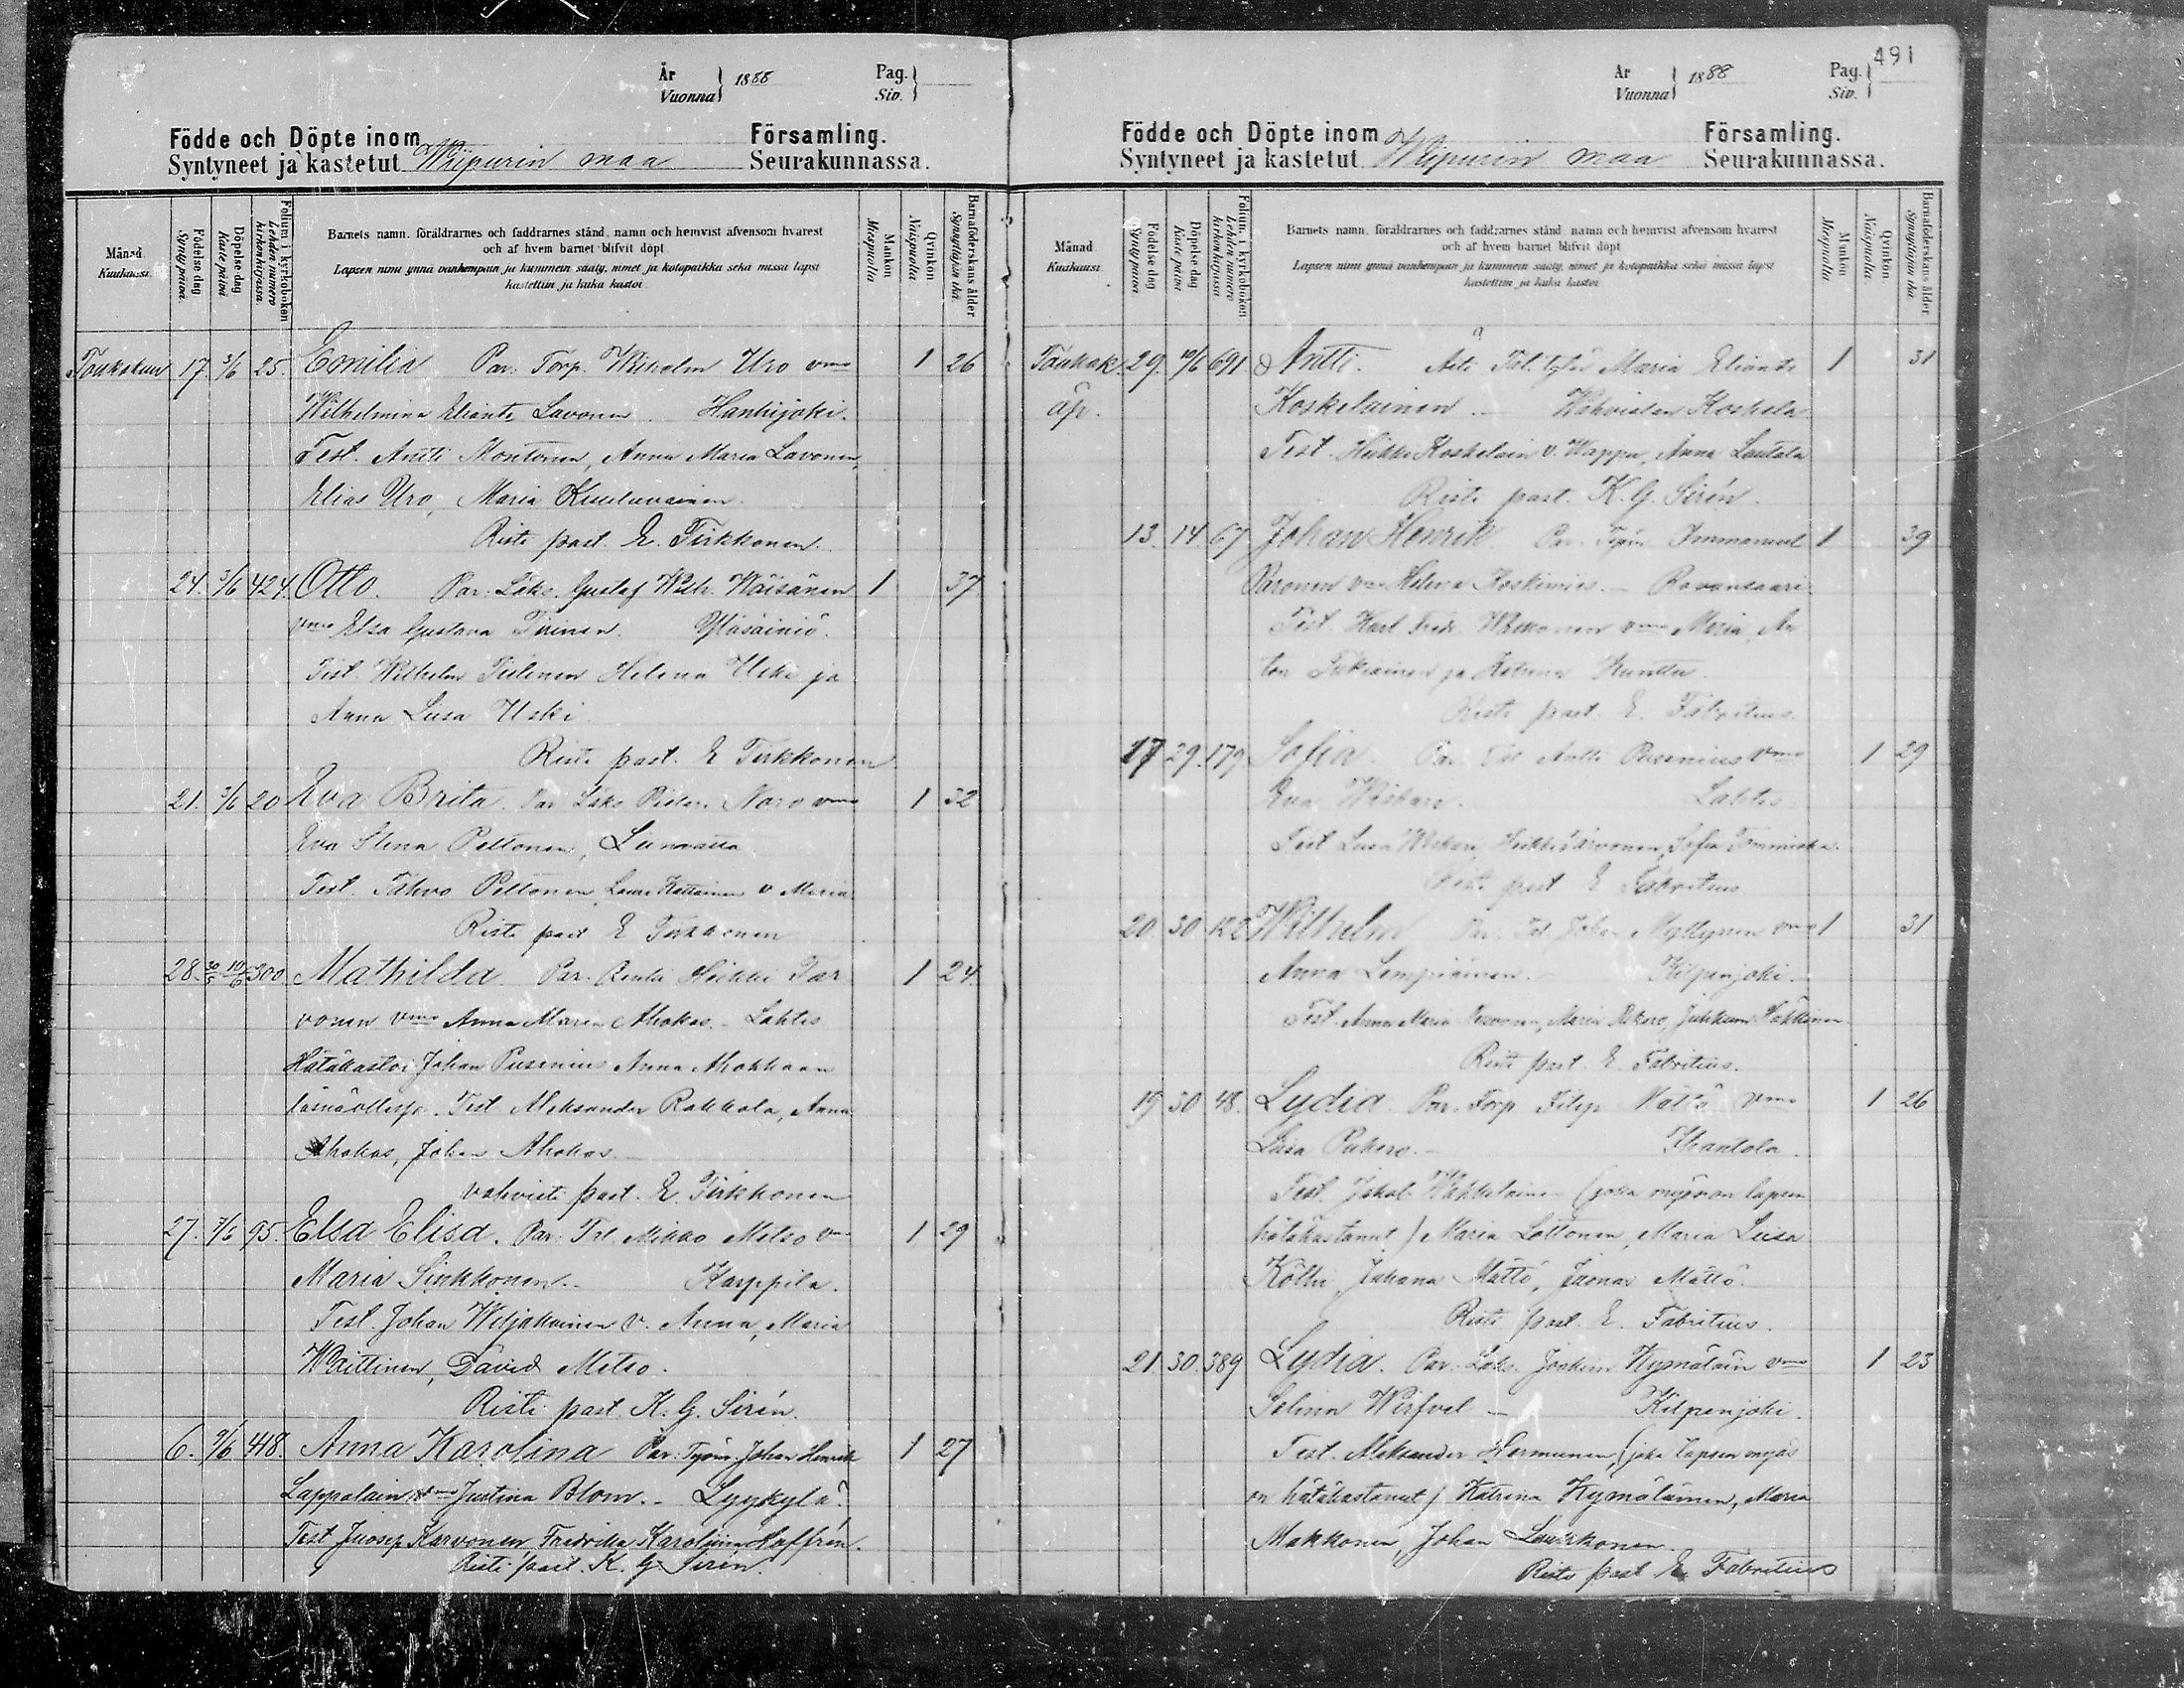 År
Vuonna } 1888
Pag.
Siv. }
Födde och Döpte inom
Syntyneet ja kastetut Wiipurin maa
Församling.
Seurakunnassa.
Månad
Kuukausi
Födelse dag
Synty päiva
Döpelse dag
Kaste päivä
Folium i kyrkoboken
Lehden numero
kirkonkirjassa
Barnets namn, föräldrarnes och faddrarnes stånd, namn och hemvist äfvensom hvarest
och af hvem barnet blifvit döpt
Lapsen nimi ynnä vanhempain ja kummein sääty, nimet ja kotopaikka sekä missä lapsi
kastettiin ja kuka kastoi
Mankön
Miespuolia
Qvinkön
Naispuolia
Barnaföderskans ålder
Synnyttäjän ikä
Toukokuu 17. 3/6 25. Emilia Par. Torp. Wilhelm Uro vmo 1 26
Wilhelmina Eliant. Lavonen Hanhijoki.
Test. Antti Montonen, Anna Maria Lavonen,
Elias Uro, Maria Kuuluvainen.
Risti past. E. Tirkkonen.
24. 3/6 424. Otto. Par. Läks. Gustaf Wilh. Wäisänen 1 37
vmo Elsa Gustava Tiainen. Yläsäiniö.
Test. Wilhelm Helena Uski ja
Anna Liisa Uski.
Risti past. E Tirkkonen
21. 3/6 20 Eva Brita. Par Läks Pieter Naro vmo 1 32
Eva Stina Peltonen,
Test. Tahvo Peltonen, v Maria
Risti past E Tirkkonen
28. 30/5 10/6 300. Mathilda. Par. Heikki Tar 1 24
vonen vmo Anna Maria Ahokas. - Lahtis
Hätäkastoi Johan Pusenius Anna Ahokkaan
läsnäollessa. Test Aleksander Rakkola, Anna
Ahokas, Johan Ahokas.
vahvisti past. E. Tirkkonen
27. 7/6 95. Elsa Elisa. Par. Tal Mikko Mitso vmo 1 29
Maria Sinkkonen. Karppila.
Test. Johan Wiljakainen v. Anna, Maria
Waittinen, David Mitso.
Risti past. K. G. Sirén.
6. 9/6 418. Anna Karolina Par: Työm Johan Henrik 1 27
Lappalain vmo Justina Blom. - Lyykylä.
Test Juosep Karvonen, Fredrika Karoliina Haffrén.
Risti past. K. G. Sirén.
491
År
Vuonna } 1888
Pag.
Siv. }
Födde och Döpte inom
Syntyneet ja kastetut Wiipurin maa
Församling.
Seurakunnassa.
Månad
Kuukausi
Födelse dag
Synty päiva
Döpelse dag
Kaste päivä
Folium i kyrkoboken
Lehden numero
kirkonkirjassa
Barnets namn, föräldrarnes och faddrarnes stånd, namn och hemvist äfvensom hvarest
och af hvem barnet blifvit döpt
Lapsen nimi ynnä vanhempain ja kummein sääty, nimet ja kotopaikka sekä missä lapsi
kastettiin ja kuka kastoi
Mankön
Miespuolia
Qvinkön
Naispuolia
Barnaföderskans ålder
Synnyttäjän ikä
Toukok. 29. 10/6 691 Antti. Äiti Tal. tytär Maria Eliant. 1 31
äp. Koskelainen. - Wahvialan Koskela
Test. Heikki Koskelain v. Wappu, Anna Lautala
Risti past. K. G. Sirén.
13. 14. 67 Johan Henrik. Par. Työm Immanuel 1 39
Paronen vmo Helena Koskimies. - Ravansaari
Test. Karl Fredr. vmo Maria, An
ton ja Katrina Hunttu.
Risti past. E. Fabritius.
17 29. 179. Sofia. Par. Tal Antti Pusenius vmo 1 29
Eva Wiskari. Lahtis
Test Liisa Wiskari, Heikki Tarvonen, Sofia Tommiska.
Risti past E Fabritius
20. 30. 122 Wilhelm Par. Tal. Johan Myllynen vmo 1 31
Anna Lempiäinen. Kilpenjoki.
Test. Anna Maria Maria Pukero, Juhkum Häkkinen
Risti past. E. Fabritius.
19 30 48. Lydia. Par. Torp Filip Mättö vmo 1 26
Liisa Pukero. - Ihantola.
Test. Jakob Wakkilainen (joka myös on lapsen
hätäkastanut) Maria Lottonen, Maria Liisa
Kölhi, Juhana Mättö, Joonas Mättö.
Risti past. E. Fabritius.
21. 30. 389 Lydia. Par. Läks. Joakim Kymäläin vmo 1 23
Selina Wirfvel - Kilpenjoki.
Test. Aleksander Hermunen, (joka lapsen myös
on hätäkastanut) Katrina Kymäläinen, Maria
Makkonen, Johan Laurikkonen.
Risti past E. Fabritius